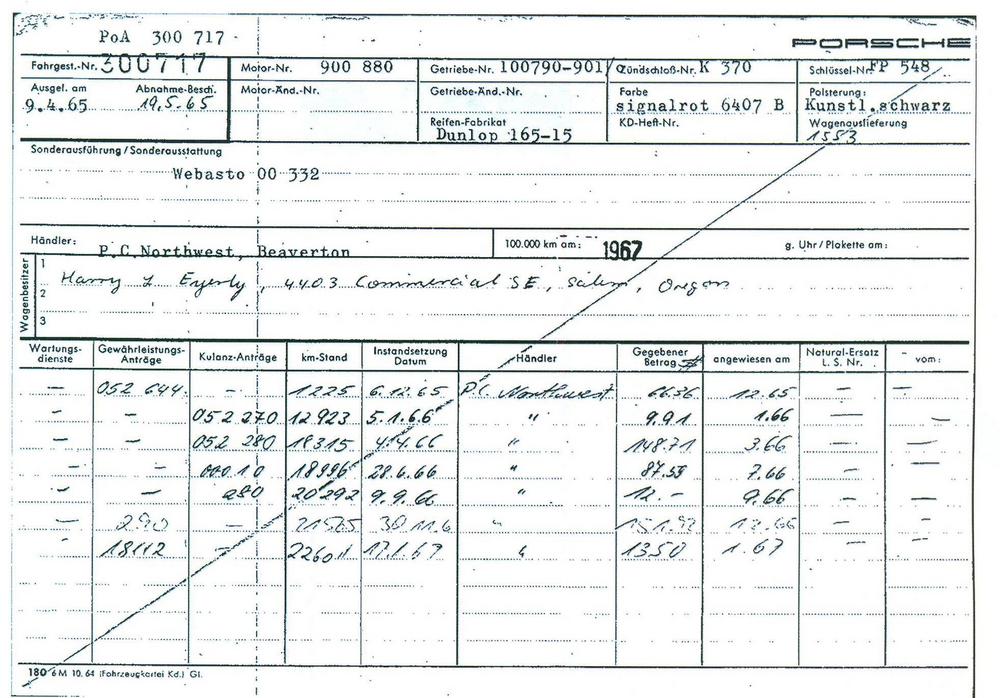 PoA 300 717
PORSCHE
Fahrgest.-Nr. 300717 Motor-Nr. 900 880 Getriebe-Nr. 100790-901/ Zündschloß-Nr. K 370 Schlüssel-Nr. FP 548
Ausgel. am Abnahme-Besch. Motor-Änd.-Nr. Getriebe-Änd.-Nr. Farbe Polsterung:
9.4.65 19.5.65 signalrot 6407 B Kunstl.schwarz
Reifen-Fabrikat KD-Heft-Nr. Wagenauslieferung
Dunlop 165-15 1553
Sonderausführung/Sonderausstattung
Webasto 00 332
Händler: P.C.Northwest, Beaverton 100.000 km am: 1967 g. Uhr/Plakette am:
Wagenbesitzer
1
Harry L Eyerly, 4403 Commercial SE, Salem, Oregon
2
3
Wartungs-dienste Gewährleistungs-Anträge Kulanz-Anträge km-Stand Instandsetzung Datum Händler Gegebener Betrag angewiesen am Natural-Ersatz L. S. Nr. vom:
— 052 644 — 1225 6.12.65 P.C. Northwest 66.36 12.65 — —
— — 052 270 12 923 5.1.66 " 9.91 1.66 — —
— — 052 280 18315 4.4.66 " 148.71 3.66 — —
— — 00010 18996 28.6.66 " 87.59 7.66 — —
— — 280 20292 9.9.66 " 12.- 9.66 — —
— 290 — 30 11.6 " 12.66 — —
18112 — 17.1.67 " 13.50 1.67 — —
180 6 M 10. 64 (Fahrzeugkartei Kd.) Gl.